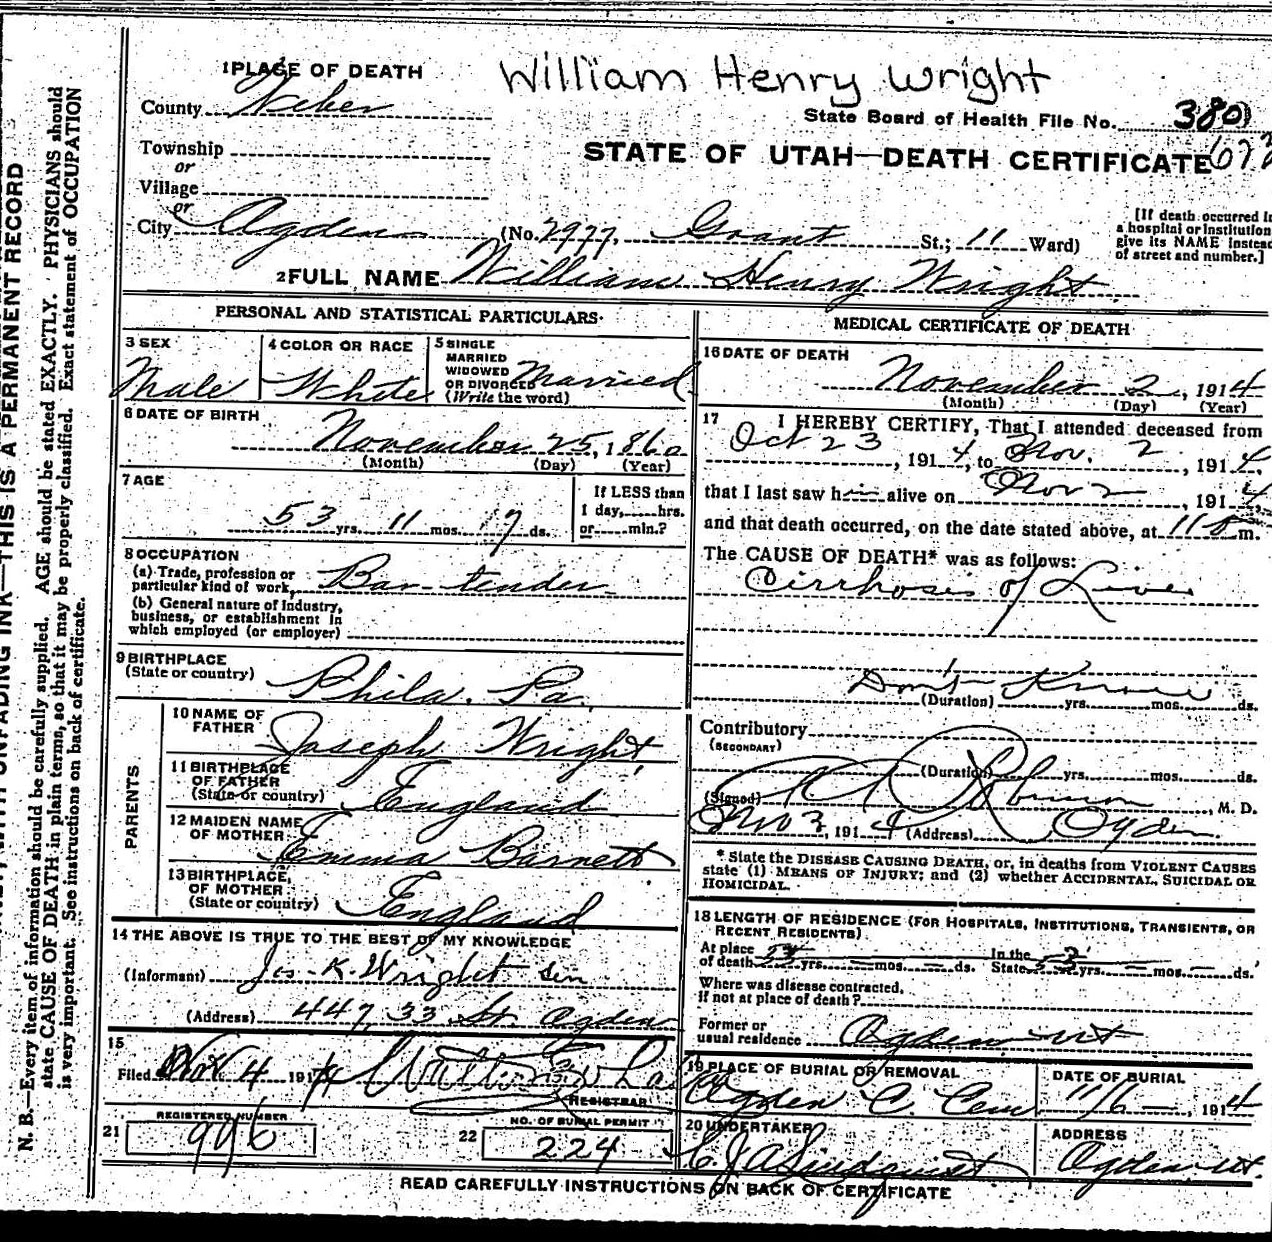 William Henry Wright
1 PLACE OF DEATH
County Weber
State Board of Health File No. 380
Township
or
STATE OF UTAH—DEATH CERTIFICATE
Village
or
City Ogden (No. 2977, Grant St.; 11 Ward)
[If death occurred in
a hospital or institution
give its NAME instead
of street and number.]
2 FULL NAME William Henry Wright
PERSONAL AND STATISTICAL PARTICULARS
3 SEX
Male
4 COLOR OR RACE
White
5 SINGLE
MARRIED
WIDOWED
OR DIVORCED
(Write the word)
Married
6 DATE OF BIRTH
November 25, 1860
(Month) (Day) (Year)
7 AGE
53 yrs. 11 mos. 7 ds.
If LESS than
1 day, hrs.
or min.?
8 OCCUPATION
(a) Trade, profession or
particular kind of work, Bar-tender
(b) General nature of Industry,
business, or establishment in
which employed (or employer)
9 BIRTHPLACE
(State or country) Phila. Pa.
PARENTS
10 NAME OF
FATHER Joseph Wright
11 BIRTHPLACE
OF FATHER
(State or country) England
12 MAIDEN NAME
OF MOTHER Emma Barnett
13 BIRTHPLACE,
OF MOTHER
(State or country) England
14 THE ABOVE IS TRUE TO THE BEST OF MY KNOWLEDGE
(Informant) Jos. K. Wright
(Address) 447, 33 St. Ogden
15
Filed Nov 4 1914
REGISTRAR
REGISTERED NUMBER
21
NO. OF BURIAL PERMIT
22 224
MEDICAL CERTIFICATE OF DEATH
16 DATE OF DEATH
November 2, 1914
(Month) (Day) (Year)
17 I HEREBY CERTIFY, That I attended deceased from
Oct 23, 1914, to Nov. 2, 1914,
that I last saw him alive on Nov 2, 1914,
and that death occurred, on the date stated above, at 11 m.
The CAUSE OF DEATH* was as follows:
Cirrhosis of Liver
Don't Know
(Duration) yrs. mos. ds.
Contributory
(SECONDARY)
(Duration) yrs. mos. ds.
(Signed) Robinson, M. D.
Nov 3, 1914 (Address) Ogden
* State the DISEASE CAUSING DEATH, or, in deaths from VIOLENT CAUSES
state (1) MEANS OF INJURY; and (2) whether ACCIDENTAL, SUICIDAL OR
HOMICIDAL.
18 LENGTH OF RESIDENCE (FOR HOSPITALS, INSTITUTIONS, TRANSIENTS, OR
RECENT RESIDENTS)
At place
of death yrs. mos. ds.
In the
State yrs. mos. ds.
Where was disease contracted,
if not at place of death?
Former or
usual residence Ogden Ut
19 PLACE OF BURIAL OR REMOVAL
Ogden C. Cem
DATE OF BURIAL
11/6, 1914
20 UNDERTAKER
Lindquist
ADDRESS
Ogden Ut
READ CAREFULLY INSTRUCTIONS ON BACK OF CERTIFICATE
THIS IS A PERMANENT RECORD
N. B.—Every item of information should be carefully supplied. AGE should be stated EXACTLY. PHYSICIANS should
state CAUSE OF DEATH in plain terms, so that it may be properly classified. Exact statement of OCCUPATION
is very important. See instructions on back of certificate.